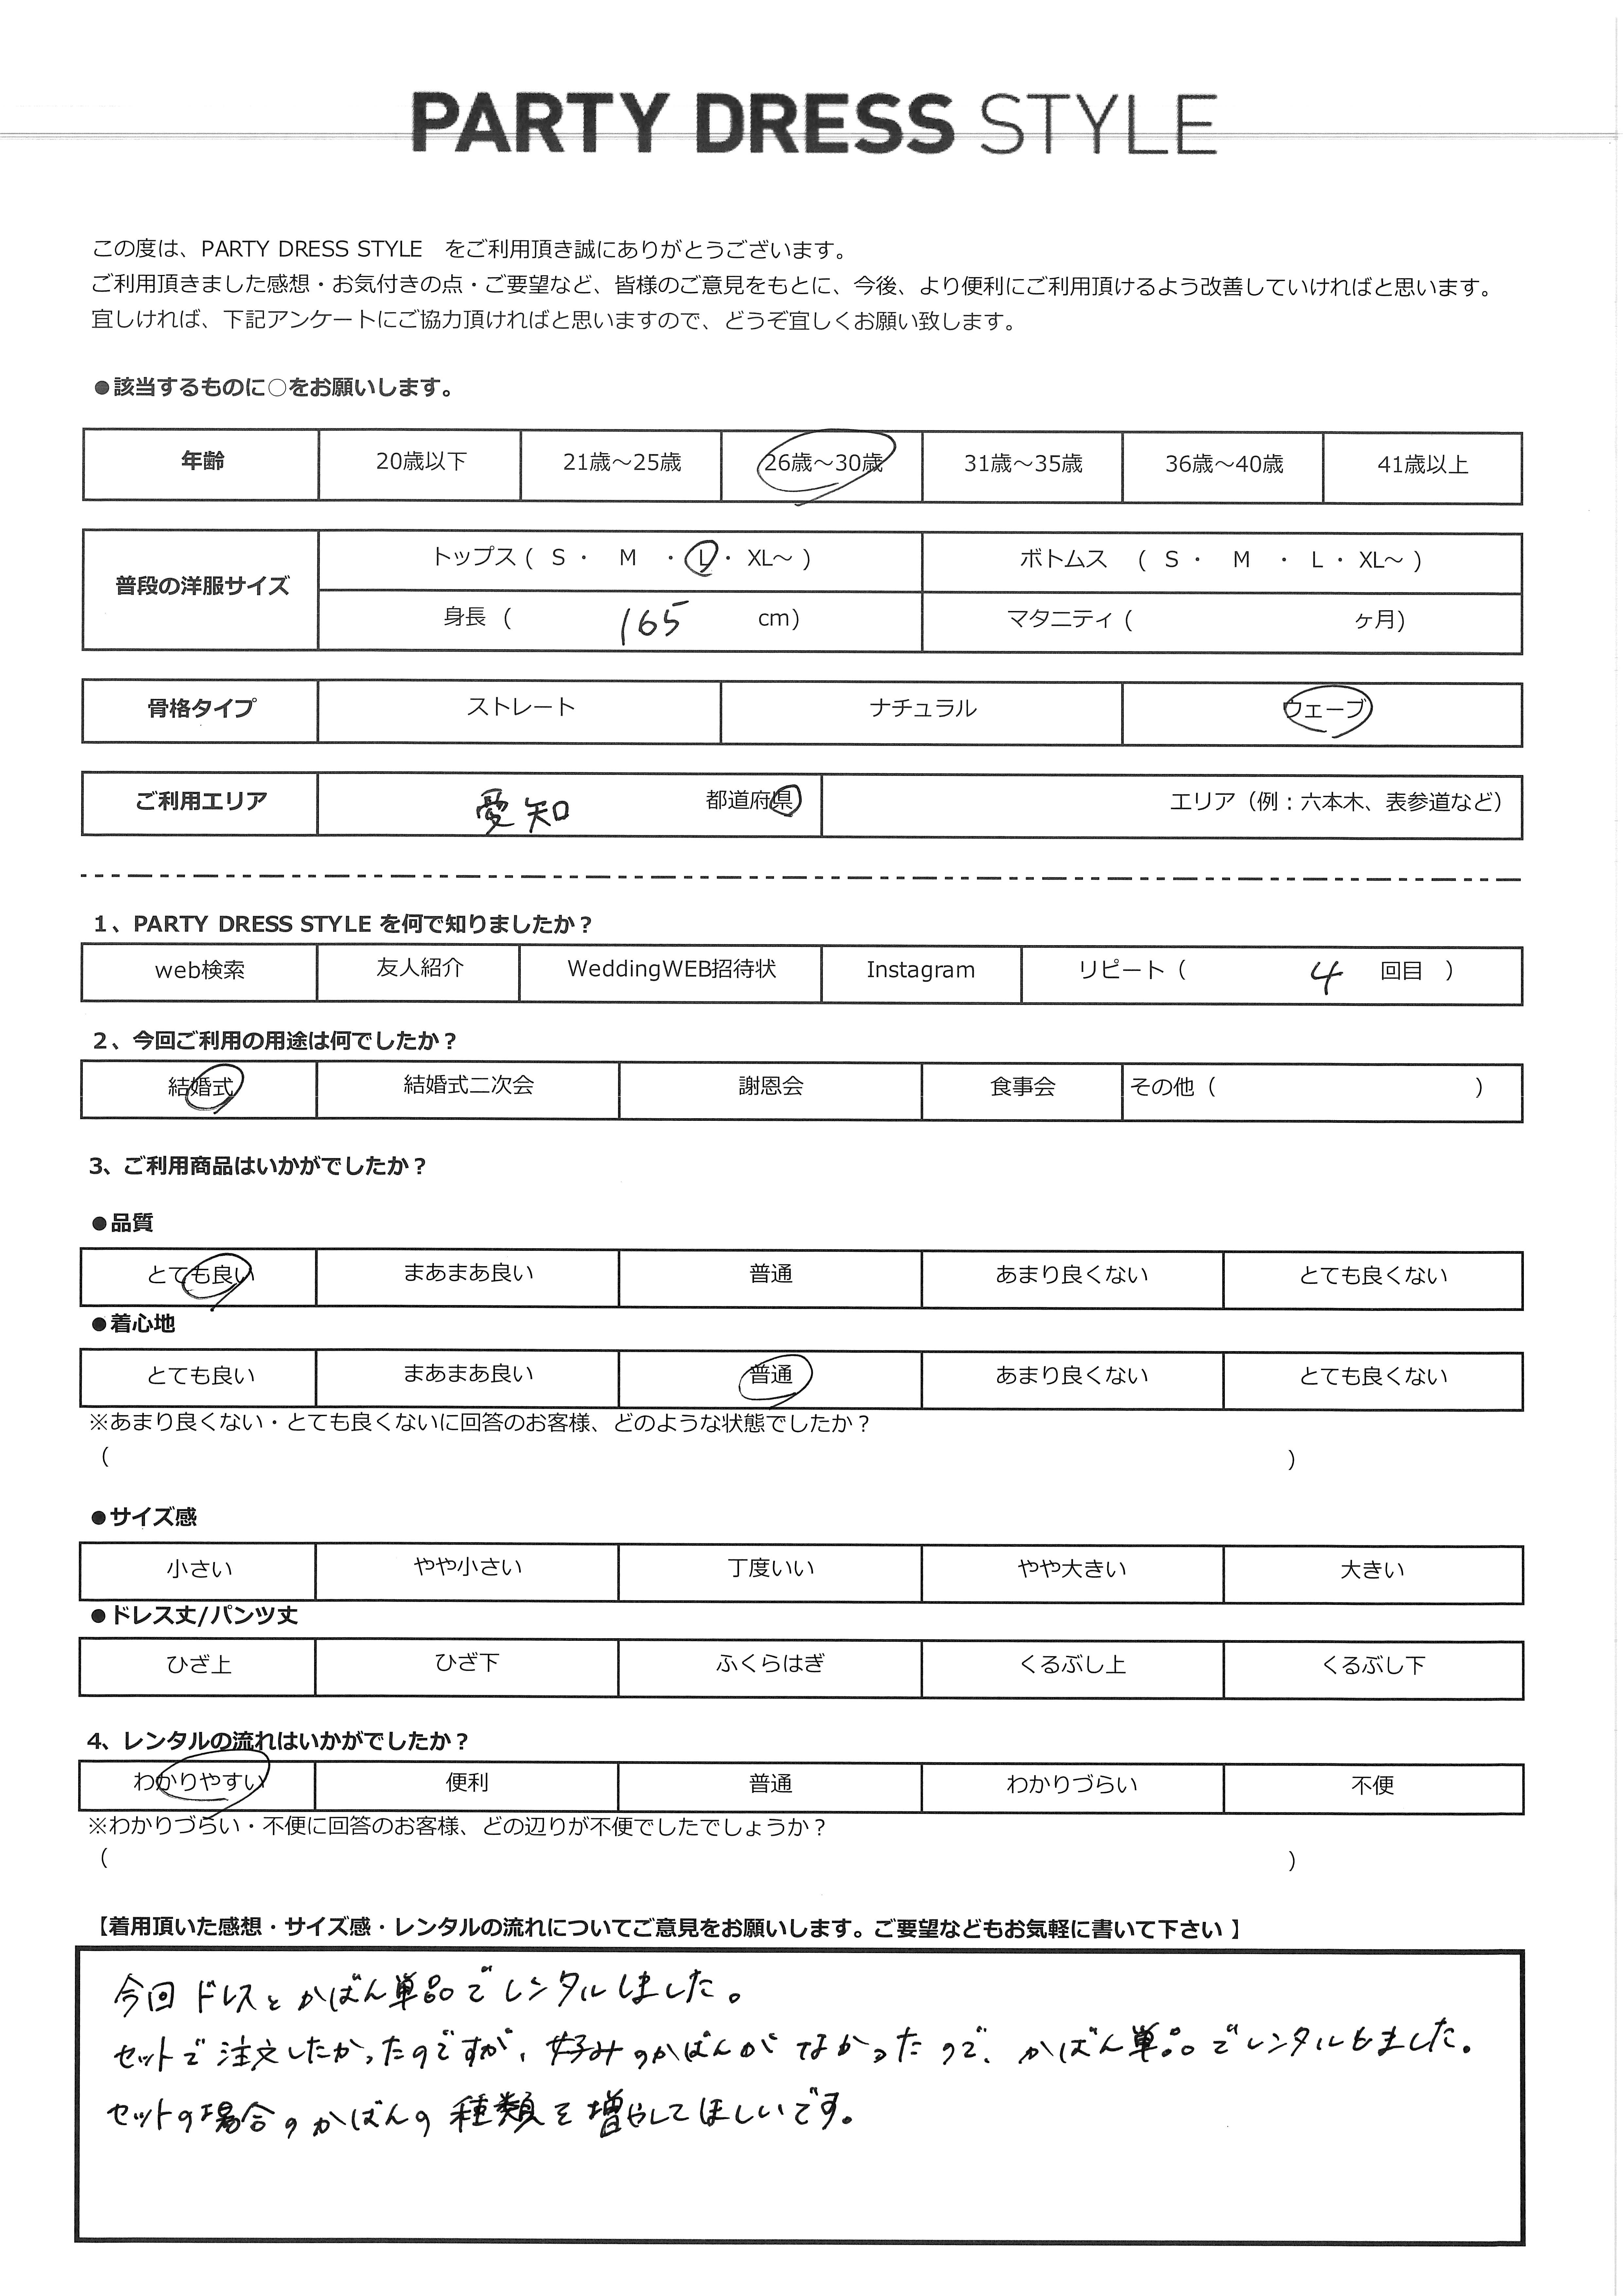 PARTY DRESS STYLE
この度は、PARTY DRESS STYLE　をご利用頂き誠にありがとうございます。
ご利用頂きました感想・お気付きの点・ご要望など、皆様のご意見をもとに、今後、より便利にご利用頂けるよう改善していければと思います。
宜しければ、下記アンケートにご協力頂ければと思いますので、どうぞ宜しくお願い致します。
●該当するものに○をお願いします。
年齢 20歳以下 21歳～25歳 26歳～30歳 31歳～35歳 36歳～40歳 41歳以上
普段の洋服サイズ
トップス ( S ・ M ・ L ・ XL～ ) ボトムス ( S ・ M ・ L ・ XL～ )
身長 ( 165 cm) マタニティ ( ヶ月)
骨格タイプ ストレート ナチュラル ウェーブ
ご利用エリア 愛知 都道府県 エリア（例：六本木、表参道など）
1、PARTY DRESS STYLE を何で知りましたか？
web検索 友人紹介 WeddingWEB招待状 Instagram リピート（ 4 回目 ）
2、今回ご利用の用途は何でしたか？
結婚式 結婚式二次会 謝恩会 食事会 その他（ ）
3、ご利用商品はいかがでしたか？
●品質
とても良い まあまあ良い 普通 あまり良くない とても良くない
●着心地
とても良い まあまあ良い 普通 あまり良くない とても良くない
※あまり良くない・とても良くないに回答のお客様、どのような状態でしたか？
（ ）
●サイズ感
小さい やや小さい 丁度いい やや大きい 大きい
●ドレス丈/パンツ丈
ひざ上 ひざ下 ふくらはぎ くるぶし上 くるぶし下
4、レンタルの流れはいかがでしたか？
わかりやすい 便利 普通 わかりづらい 不便
※わかりづらい・不便に回答のお客様、どの辺りが不便でしたでしょうか？
（ ）
【着用頂いた感想・サイズ感・レンタルの流れについてご意見をお願いします。ご要望などもお気軽に書いて下さい 】
今回 ドレスと かばん単品でレンタルしました。
セットで注文したかったのですが、好みのかばんが なかったので、かばん単品でレンタルしました。
セットの場合のかばんの種類を増やしてほしいです。